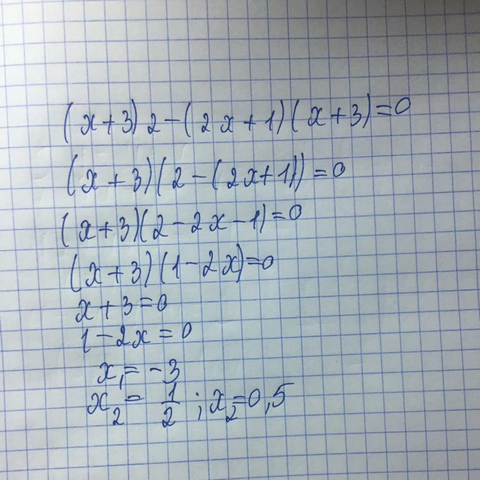 (x+3)2-(2x+1)(x+3)=0
(x+3)(2-(2x+1))=0
(x+3)(2-2x-1)=0
(x+3)(1-2x)=0
x+3=0
1-2x=0
x₁=-3
x₂=1/2; x₂=0,5